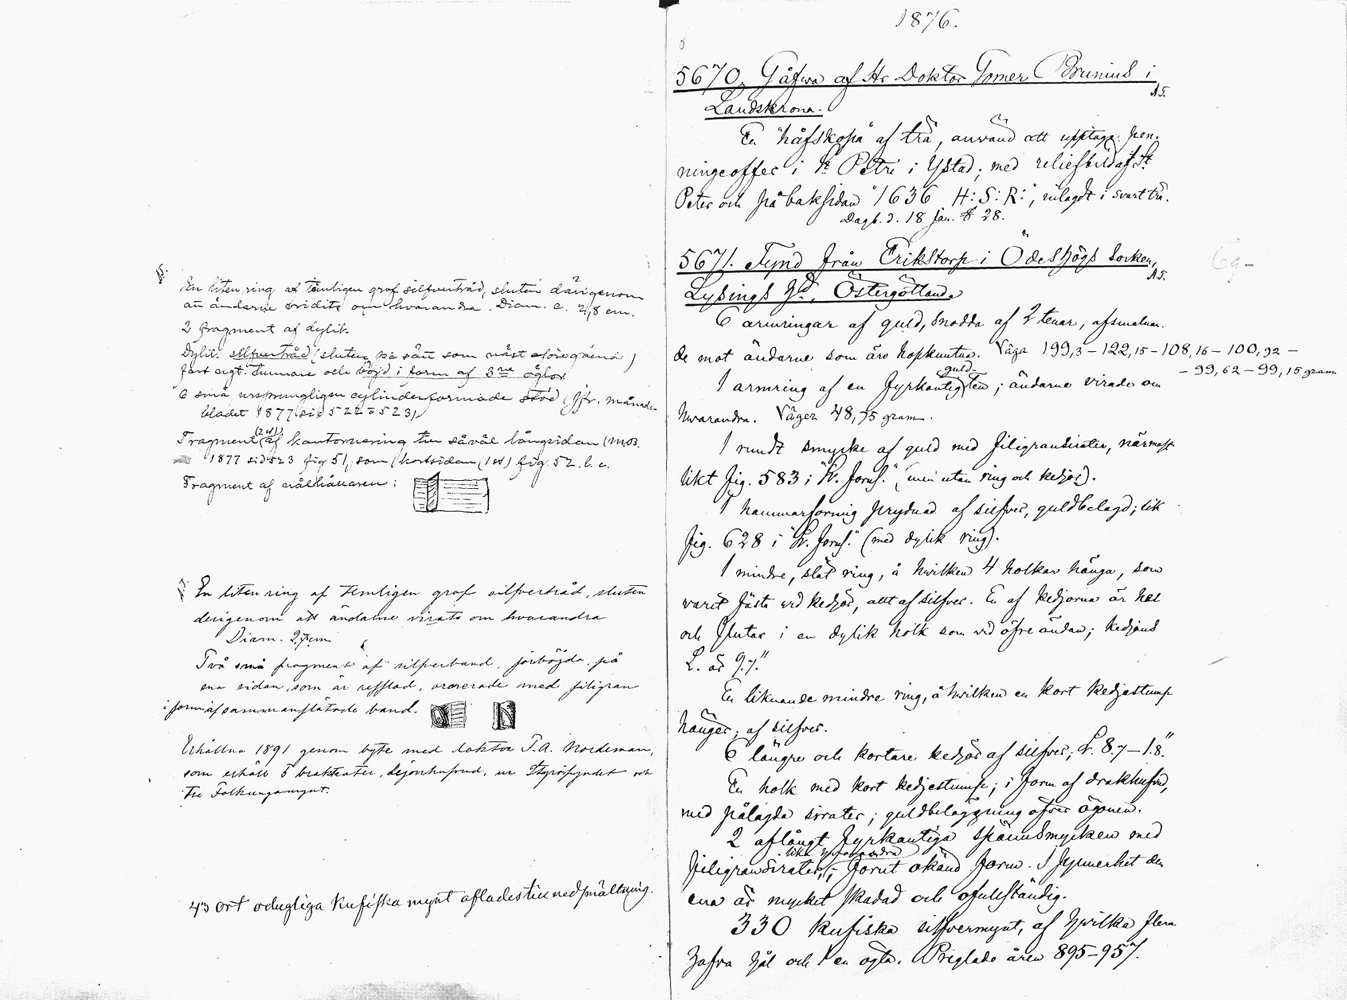 En liten ring af tämligen grof silfvertråd, sluten därigenom
att ändarne vridits om hvarandra. Diam. c. 2,8 cm.
2 fragment af dylik.
Dylik silfvertråd (sluten på sätt som näst föregående)
fast ngt. tunnare och böjd i form af 3ne öglor
6 små ursprungligen cylinderformade stöd (jfr. månads-
bladet 1877 sid 522-523)
Fragment (2 st) af kantornering till såväl långsidan (M.B.
1877 sid 523 fig 51), som kortsidan (1 st) fig. 52. b. c.
Fragment af nålhållaren:
En liten ring af temligen grof silfvertråd, sluten
derigenom att ändarne virats om hvarandra
Diam. 2,7 cm.
Två små fragment af silfverband, förböjda, på
ena sidan, som är refflad, ornerade med filigran
i form af sammanflätade band.
Erhållna 1891 genom byte med doktor T. A. Nordeman,
som erhöll 5 brakteater, ur Styrsöfyndet och
tre Folkungamynt.
43 ort odugliga kufiska mynt aflades till nedsmältning.
1876.
5670. Gåfva af Hr Doktor Gomer Brunius i
Landskrona.
En "håfskopa" af trä, använd att upptaga pen-
ningeoffer i St Petri i Ystad; med reliefbild af St
Peter och på baksidan "1636 H:S:R:", inlagdt i svart trä.
Dagb. d. 18 Jan. № 28.
5671. Fynd från Erikstorp i Ödeshögs Socken,
Lysings Hd, Östergötland.
6 armringar af guld, snodda af 2 tenar, afsmalnan-
de mot ändarne som äro hopknutna. Väga 199,3 – 122,15 – 108,16 – 100,92 –
– 99,62 – 99,15 gram
1 armring af en fyrkantig guld-ten; ändarne virade om
hvarandra. Väger 48,75 gram.
1 rundt smycke af guld med filigransirater, närmast
likt fig. 583 i "Sv. Forns." (men utan ring och kedjor).
1 hammarformig prydnad af silfver, guldbelagd; lik
fig. 628 i "Sv. Forns." (med dylik ring).
1 mindre, slät ring, å hvilken 4 holkar hänga, som
varit fästa vid kedjor, allt af silfver. En af kedjorna är hel
och slutar i en dylik holk som vid öfre ändan; kedjans
L. är 9.7."
En liknande mindre ring, å hvilken en kort kedjestump
hänger; af silfver.
6 längre och kortare kedjor af silfver; L. 8.7 – 1.8."
En holk med kort kedjestump; i form af drakhufvud,
med pålagda sirater; guldbeläggning öfver ögonen.
2 aflångt fyrkantiga spännsmycken med
filigransirater, lika hvarandra; förut okänd form. I synnerhet den
ena är mycket skadad och ofullständig.
330 kufiska silfvermynt, af hvilka flera
hafva hål och 1 en ögla. Präglade åren 895–957.